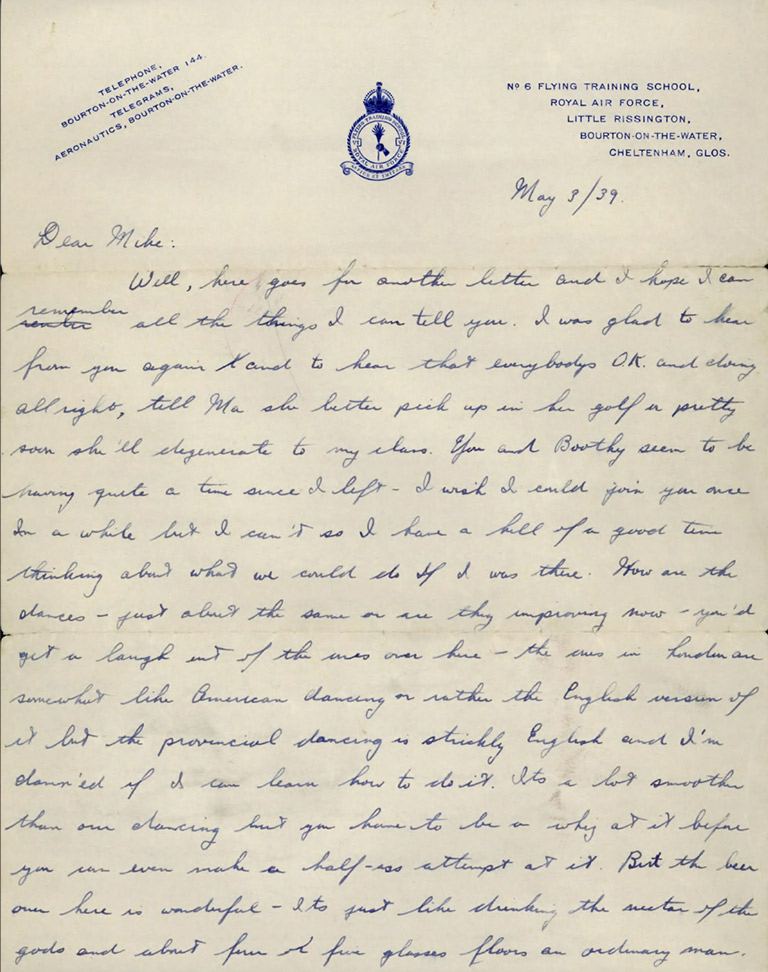 TELEPHONE,
BOURTON-ON-THE-WATER 144.
TELEGRAMS,
AERONAUTICS, BOURTON-ON-THE-WATER.
FLYING TRAINING SCHOOL
VI VI
ROYAL AIR FORCE
Nº 6 FLYING TRAINING SCHOOL,
ROYAL AIR FORCE,
LITTLE RISSINGTON,
BOURTON-ON-THE-WATER,
CHELTENHAM, GLOS.
May 3/39.
Dear Mike:
Well, here goes for another letter and I hope I can
remember
all the things I can tell you. I was glad to hear
from you again & and to hear that everybodys O.K. and doing
allright, tell Ma she better pick up in her golf or pretty
soon she'll degenerate to my class. You and Boothy seem to be
having quite a time since I left - I wish I could join you once
In a while but I can't so I have a hell of a good time
thinking about what we could do if I was there. How are the
dances - just about the same or are they improving now - you'd
get a laugh out of the ones over here - the ones in London are
somewhat like American dancing or rather the English version of
it but the provincial dancing is strickly English and I'm
damn'ed if I can learn how to do it. Its a lot smoother
than our dancing but you have to be a whig at it before
you can even make a half-ass attempt at it. But the beer
over here is wonderful - Its just like drinking the nectar of the
gods and about four or five glasses floors an ordinary man.